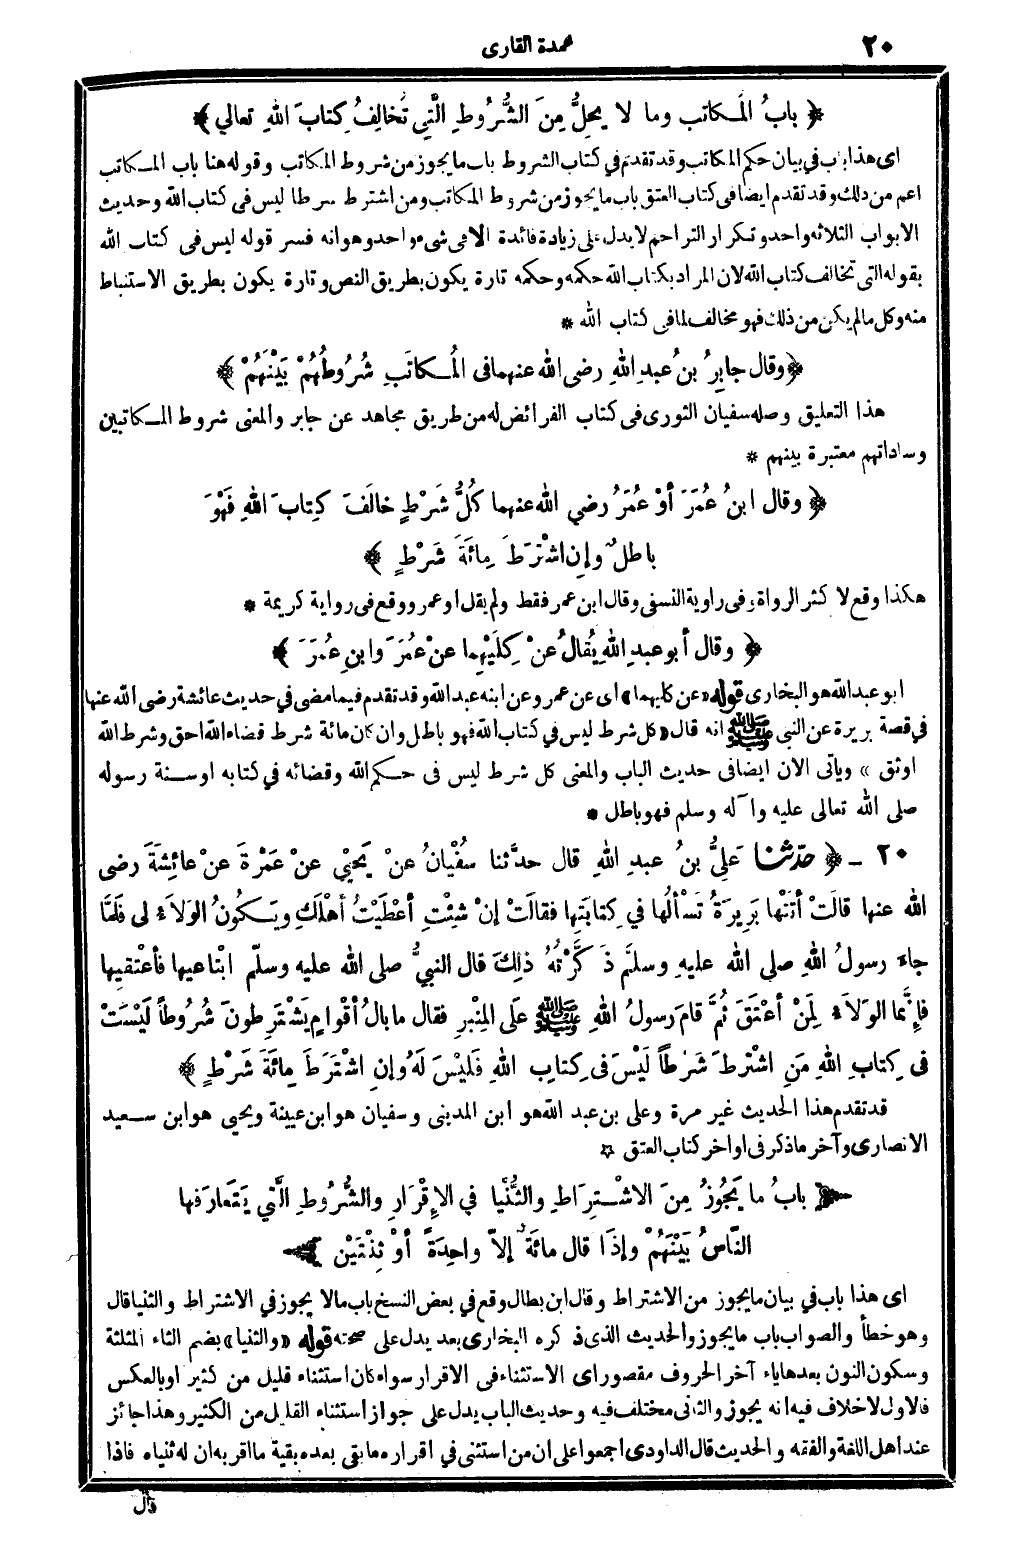 ٢٠
عمدة القارى
﴿ بابُ المُـكاتب وما لا يحِلُّ مِنَ الشُّرُوطِ الَّتِي تُخالِفُ كِتابَ اللهِ تعالي ﴾
اى هذا باب فى بيان حكم المكاتب وقد تقدم فى كتاب الشروط باب ما يجوز من شروط المكاتب وقوله هنا باب المـكاتب
اعم من ذلك وقد تقدم ايضا فى كتاب العتق باب ما يجوز من شروط المكاتب ومن اشترط شرطا ليس فى كتاب الله وحديث
الابواب الثلاثه واحد وتكرار التراجم لا يدل على زيادة فائدة الا فى شىء واحد وهو انه فسر قوله ليس فى كتاب الله
بقوله التى تخالف كتاب الله لان المراد بكتاب الله حكمه وحكمه تارة يكون بطريق النص وتارة يكون بطريق الاستنباط
منه وكل مالم يكن من ذلك فهو مخالف لما فى كتاب الله *
﴿ وقال جابِرُ بنُ عبدِ اللهِ رضى الله عنهما فى المُـكاتَبِ شُرُوطُهُمْ بَيْنَهُمْ ﴾
هذا التعليق وصله سفيان الثورى فى كتاب الفرائض له من طريق مجاهد عن جابر والمعنى شروط المـكاتبين
وساداتهم معتبرة بينهم *
﴿ وقال ابنُ عُمَرَ أوْ عُمَرُ رضي الله عنهما كُلُّ شَرْطٍ خالَفَ كِتابَ اللهِ فَهْوَ
باطلٌ وإنِ اشْتَرَطَ مِائَةَ شَرْطٍ ﴾
هكذا وقع لاكثر الرواة وفى راوية النسفى وقال ابن عمر فقط ولم يقل او عمر ووقع فى رواية كريمة *
﴿ وقال أبو عبدِ اللهِ يُقالُ عنْ كِلَيْهِما عنْ عُمَرَ وابنِ عُمَرَ ﴾
ابو عبد الله هو البخارى قوله «عن كليهما» اى عن عمر وعن ابنه عبد الله وقد تقدم فيما مضى فى حديث عائشة رضى الله عنها
فى قصة بريرة عن النبى ﷺ انه قال «كل شرط ليس فى كتاب الله فهو باطل وان كان مائة شرط قضاء الله احق وشرط الله
اوثق » وياتى الان ايضا فى حديث الباب والمعنى كل شرط ليس فى حـكم الله وقضائه فى كتابه او سـنة رسوله
صلى الله تعالى عليه وآله وسلم فهو باطل *
٢٠ ـ ﴿ حدّثنا عَلِيُّ بنُ عبدِ اللهِ قال حدَّثنا سُفْيانُ عنْ يَحْيٰي عنْ عَمْرَةَ عنْ عائِشَةَ رضى
الله عنها قالَتْ أتَتْها بَرِيرَةُ تَسْألُها فِي كِتابَتِها فقالَتْ إنْ شِئْتِ أعْطَيْتُ أهْلَكِ ويَـكُونُ الوَلاَءُ لِى فَلَمَّا
جاءَ رسولُ اللهِ صلى الله عليهِ وسلَّم ذَكَّرْتُهُ ذلِكَ قال النبيُّ صلى الله عليه وسلّم ابْتاعِيها فأعْتِقِيها
فإنَّما الوَلاَءُ لِمَنْ أعْتَقَ ثُمَّ قامَ رسولُ اللهِ ﷺ علَى المِنْبَرِ فقال ما بالُ أقْوامٍ يَشْتَرِطونَ شُرُوطاً لَيْسَتْ
فى كِتابِ اللهِ مَنِ اشْتَرطَ شَرْطاً لَيْسَ فى كِتابِ اللهِ فَلَيْسَ لَهُ وإنِ اشْتَرَطَ مِائَةَ شَرْطٍ ﴾
قد تقدم هذا الحديث غير مرة وعلى بن عبد الله هو ابن المدينى وسفيان هو ابن عيينة ويحيى هو ابن سـعيد
الانصارى وآخر ما ذكر فى اواخر كتاب العتق *
بابُ ما يَجُوزُ مِنَ الاشْتِرَاطِ والثُّنْيا في الإقْرَارِ والشُّرُوطِ الَّتي يَتَعارَفها
النّاسُ بَيْنَهُمْ وإذَا قال مائَةٌ إلاَّ واحِدَةً أوْ ثِنْتَيْنِ
اى هذا باب فى بيان ما يجوز من الاشتراط وقال ابن بطال وقع في بعض النسخ باب مالا يجوز فى الاشتراط والثنيا قال
وهو خطأ والصواب باب ما يجوز والحديث الذى ذكره البخارى بعد يدل على صحته قوله «والثنيا» بضم الثاء المثلثة
وسكون النون بعدها ياء آخر الحروف مقصور اى الاستثناء فى الاقرار سواء كان استثناء قليل من كثير او بالعكس
فالاول لاخلاف فيه انه يجوز والثانى مختلف فيه وحديث الباب يدل على جواز استثناء القليل من الكثير وهذا جائز
عند اهل اللغة والفقه والحديث قال الداودى اجمعوا على ان من استثنى في اقراره ما بقى بعده بقية ما اقر به ان له ثنياه فاذا
قال